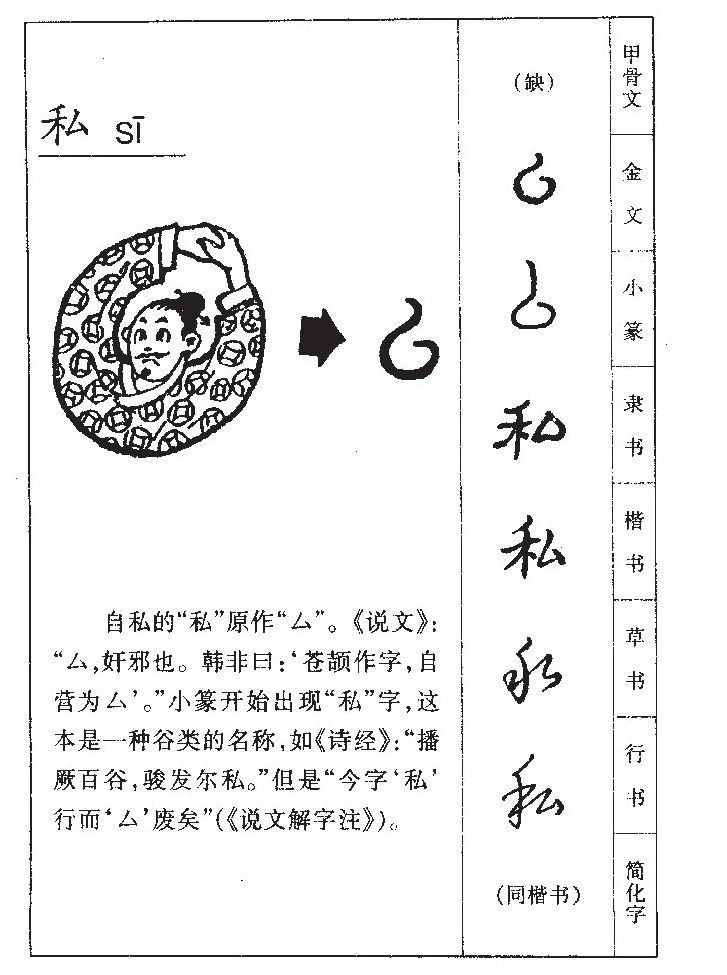 私 sī
自私的“私”原作“厶”。《说文》：
“厶，奸邪也。韩非曰：‘苍颉作字，自
营为厶’。”小篆开始出现“私”字，这
本是一种谷类的名称，如《诗经》：“播
厥百谷，骏发尔私。”但是“今字‘私’
行而‘厶’废矣”(《说文解字注》)。
(缺) 甲骨文
厶 金文
厶 小篆
私 隶书
私 楷书
私 草书
私 行书
(同楷书) 简化字